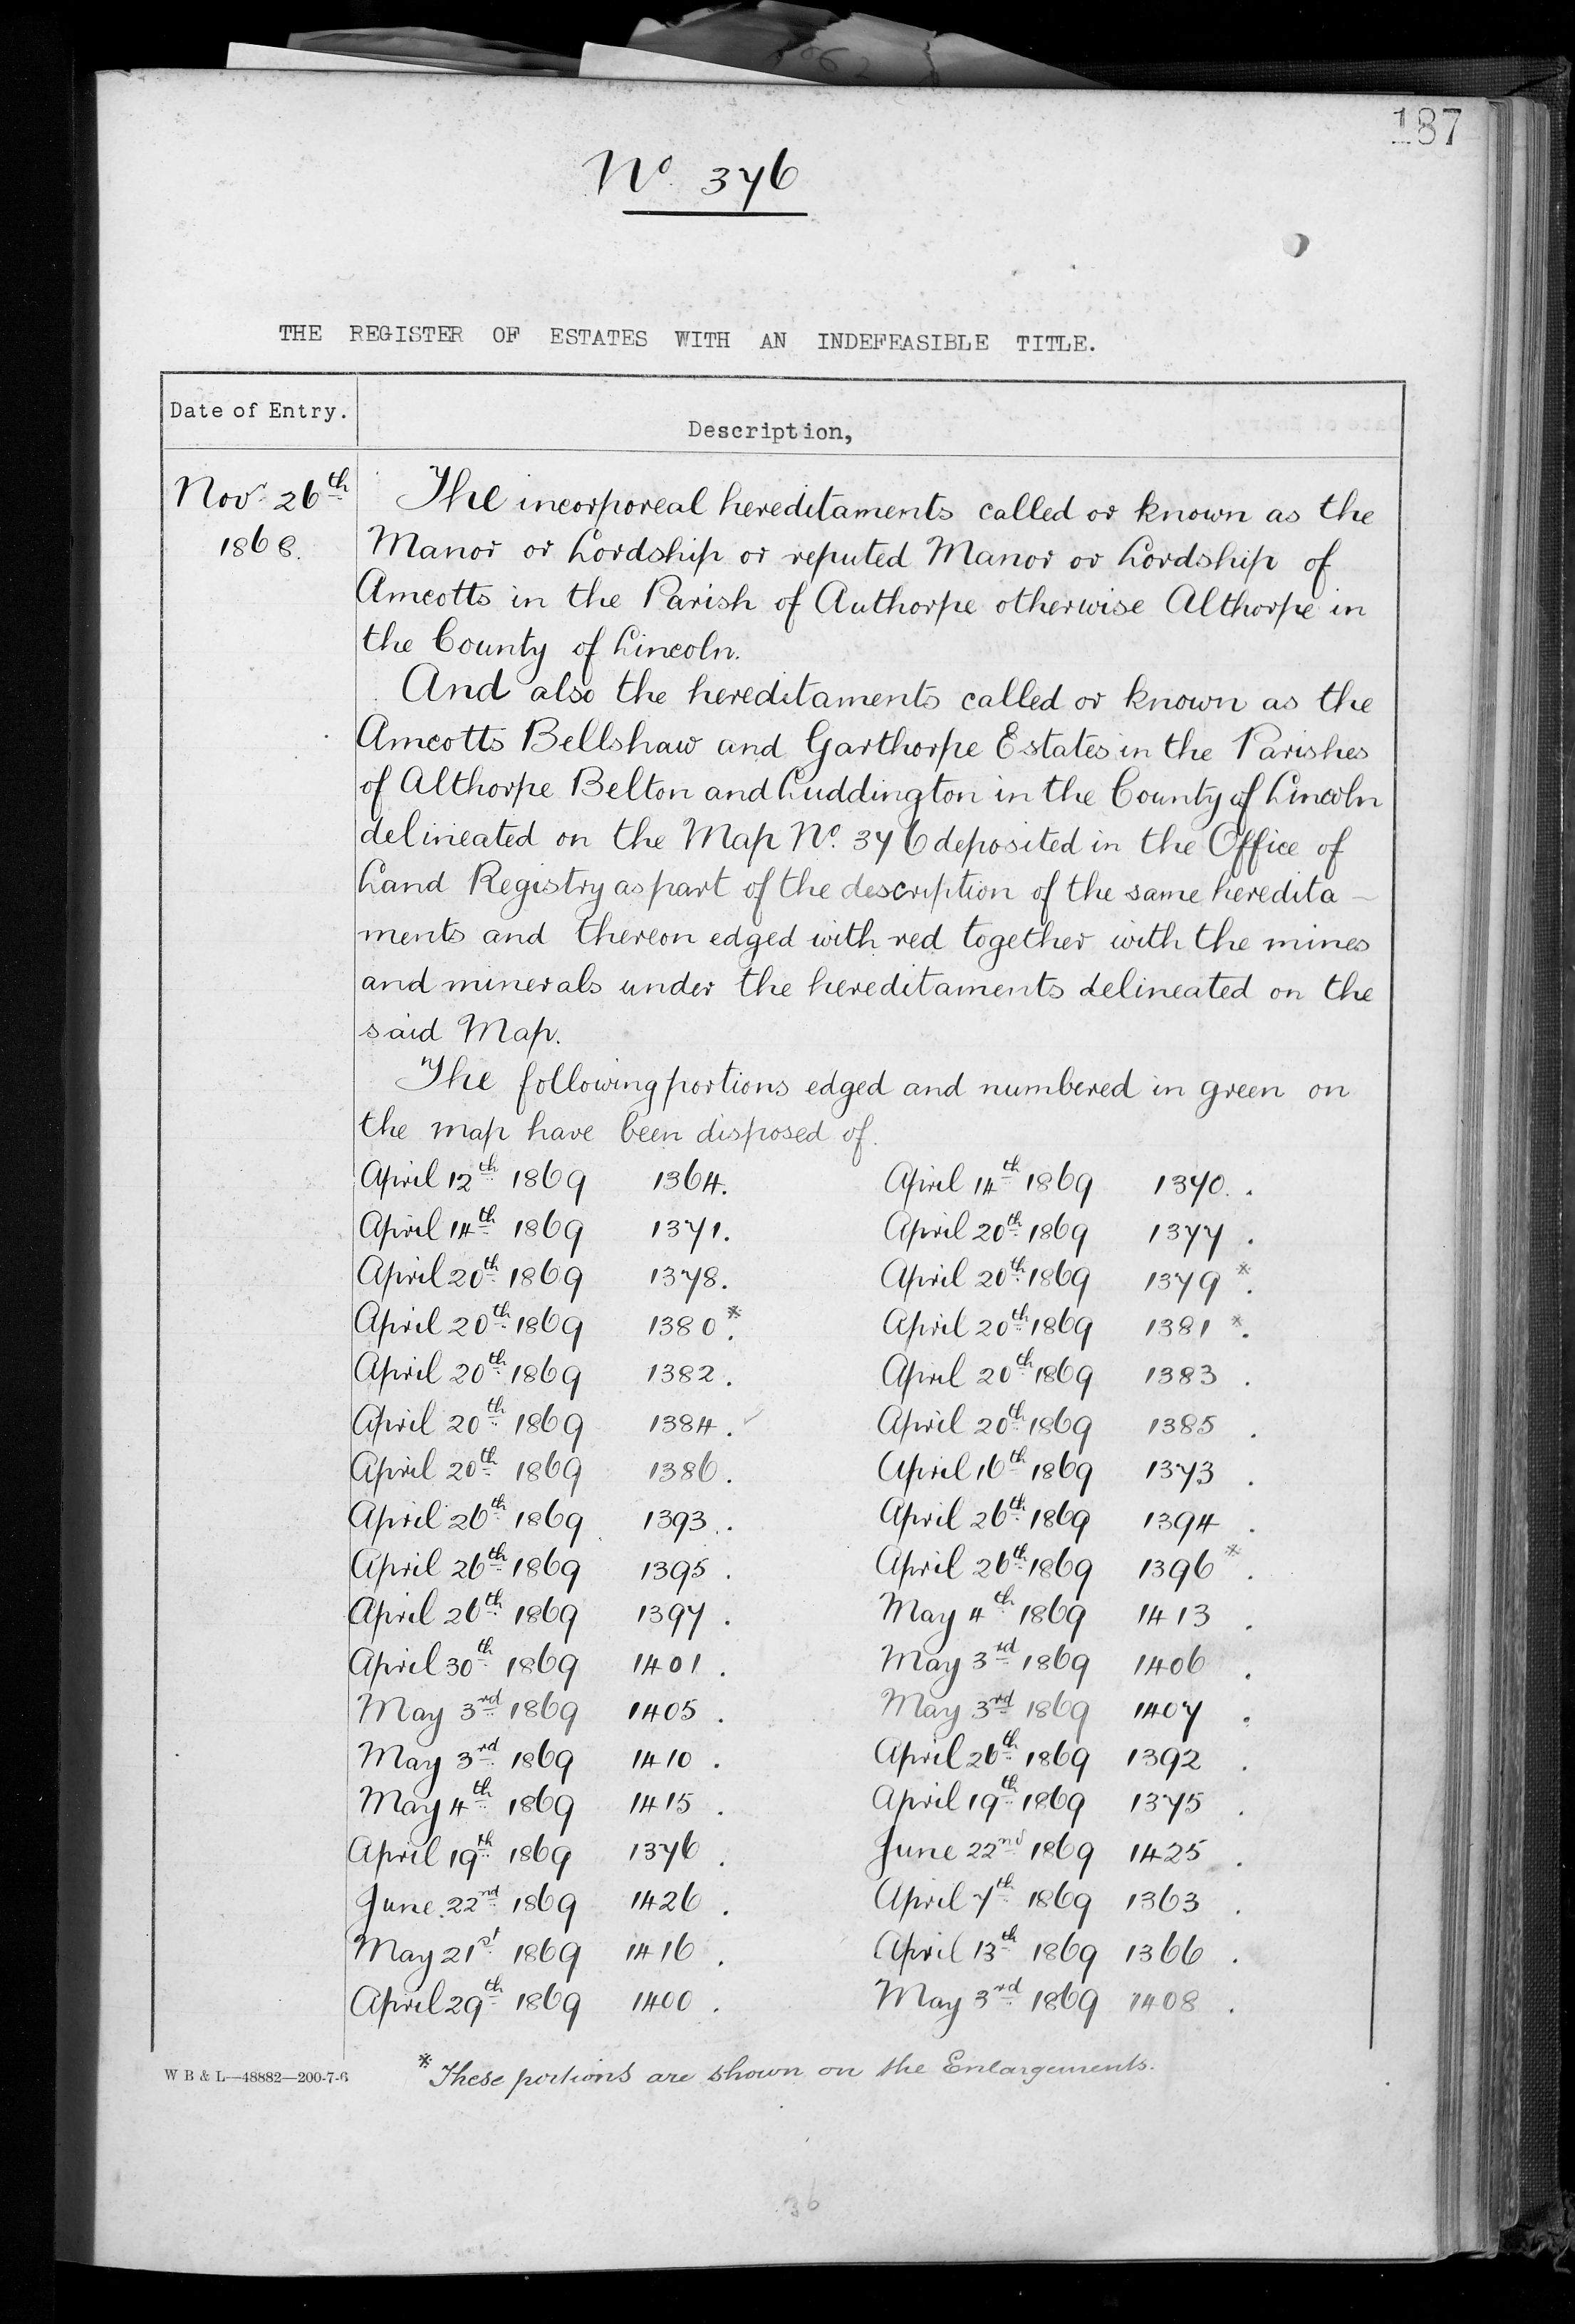 187
No. 376
THE REGISTER OF ESTATES WITH AN INDEFEASIBLE TITLE.
Date of Entry.
Description,
Nov. 26th
1868.
The incorporeal hereditaments called or known as the
Manor or Lordship or reputed Manor or Lordship of
Amcotts in the Parish of Authorpe otherwise Althorpe in
the County of Lincoln.
And also the hereditaments called or known as the
Amcotts Bellshaw and Garthorpe Estates in the Parishes
of Althorpe Belton and Luddington in the County of Lincoln
delineated on the Map No. 376 deposited in the Office of
Land Registry as part of the description of the same heredita-
ments and thereon edged with red together with the mines
and minerals under the hereditaments delineated on the
said Map.
The following portions edged and numbered in green on
the map have been disposed of.
April 12th 1869 1364. April 14th 1869 1370.
April 14th 1869 1371. April 20th 1869 1377.
April 20th 1869 1378. April 20th 1869 1379*.
April 20th 1869 1380*. April 20th 1869 1381*.
April 20th 1869 1382. April 20th 1869 1383.
April 20th 1869 1384. April 20th 1869 1385.
April 20th 1869 1386. April 16th 1869 1373.
April 26th 1869 1393. April 26th 1869 1394.
April 26th 1869 1395. April 26th 1869 1396*.
April 26th 1869 1397. May 4th 1869 1413.
April 30th 1869 1401. May 3rd 1869 1406.
May 3rd 1869 1405. May 3rd 1869 1407.
May 3rd 1869 1410. April 26th 1869 1392.
May 4th 1869 1415. April 19th 1869 1375.
April 19th 1869 1376. June 22nd 1869 1425.
June 22nd 1869 1426. April 7th 1869 1363.
May 21st 1869 1416. April 13th 1869 1366.
April 29th 1869 1400. May 3rd 1869 1408.
* These portions are shown on the Enlargements.
W B & L—48882—200-7-6
36